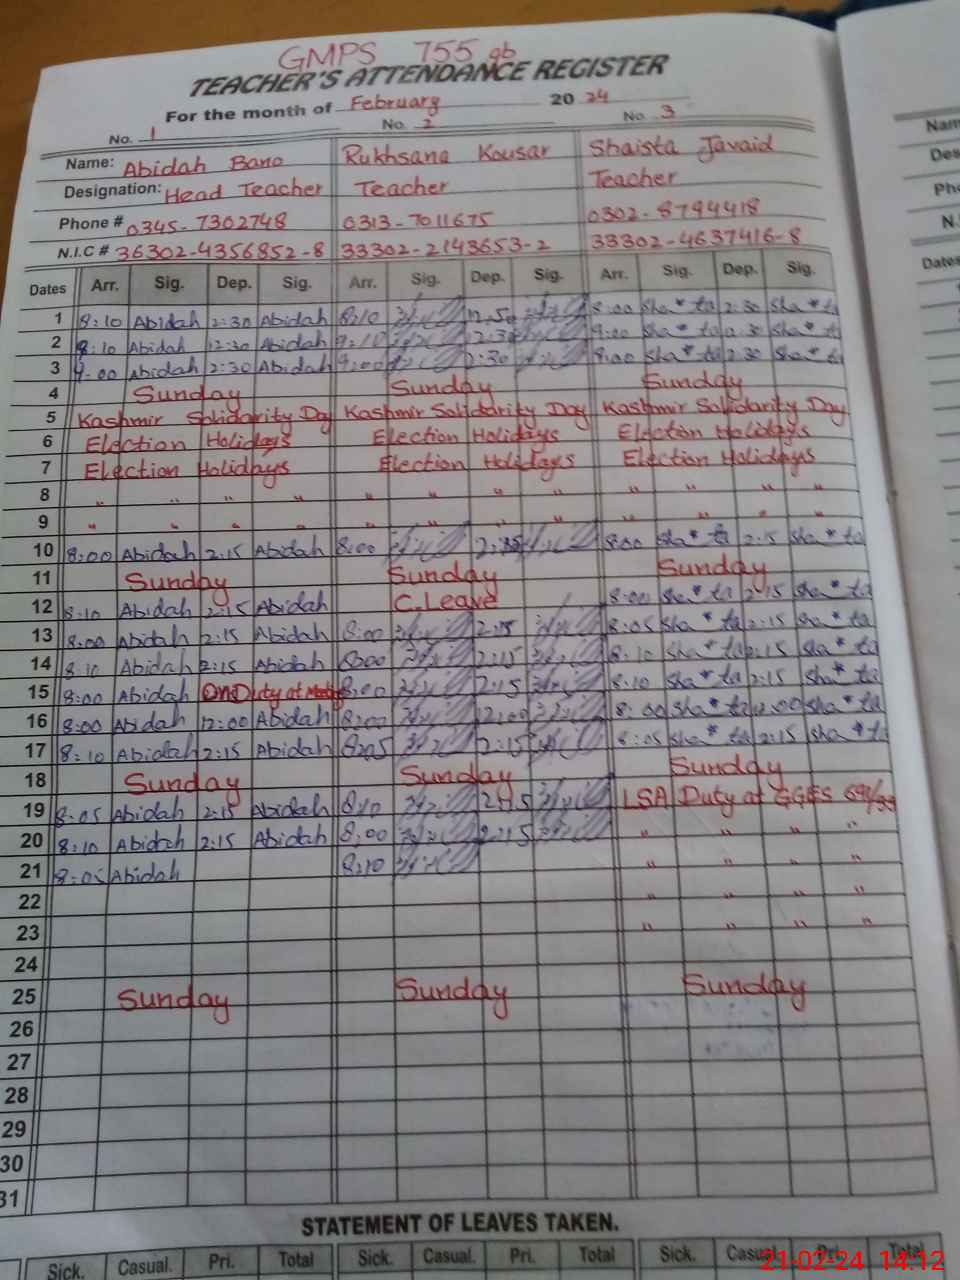 GMPS 755 gb
TEACHER'S ATTENDANCE REGISTER
For the month of February 20 24
No. 1 No. 2 No. 3
Name: Abidah Bano Rukhsana Kousar Shaista Javaid
Designation: Head Teacher Teacher Teacher
Phone # 0345-7302748 0313-7011675 0302-8794418
N.I.C # 36302-4356852-8 33302-2143653-2 33302-4637416-8
Dates Arr. Sig. Dep. Sig. Arr. Sig. Dep. Sig. Arr. Sig. Dep. Sig.
1 8:10 Abidah 2:30 Abidah 8:10 8:00 Sha*ta 2:30 Sha*ta
2 8:10 Abidah 12:30 Abidah 12:30 Sha*ta Sha*ta
3 9:00 Abidah 2:30 Abidah 9:00 2:30 Sha*ta 2:30 Sha*ta
4 Sunday Sunday Sunday
5 Kashmir Solidarity Day Kashmir Solidarity Day Kashmir Solidarity Day
6 Election Holidays Election Holidays Election Holidays
7 Election Holidays Election Holidays Election Holidays
8 " " " " " " " " " " " "
9 " " " " " " " " " " " "
10 8:00 Abidah 2:15 Abidah 8:00 8:00 Sha*ta 2:15 Sha*ta
11 Sunday Sunday Sunday
12 8:10 Abidah 2:15 Abidah C.Leave 8:00 Sha*ta 2:15 Sha*ta
13 8:00 Abidah 2:15 Abidah 8:00 2:15 8:05 Sha*ta 2:15 Sha*ta
14 8:10 Abidah 2:15 Abidah 8:00 2:15 8:10 Sha*ta 2:15 Sha*ta
15 8:00 Abidah On Duty at 8:00 2:15 8:10 Sha*ta 2:15 Sha*ta
16 8:00 Abidah 12:00 Abidah 8:00 12:00 8:00 Sha*ta 12:00 Sha*ta
17 8:10 Abidah 2:15 Abidah 8:05 2:15 8:05 Sha*ta 2:15 Sha*ta
18 Sunday Sunday Sunday
19 8:05 Abidah 2:15 Abidah 8:10 2:15 LSA Duty at GGES
20 8:10 Abidah 2:15 Abidah 8:00 2:15 " " " "
21 8:05 Abidah 8:10 " " " "
22 " " " "
23 " " " "
24
25 Sunday Sunday Sunday
26
27
28
29
30
31
STATEMENT OF LEAVES TAKEN.
Sick. Casual. Pri. Total Sick. Casual. Pri. Total Sick. Casual Pri. Total
21-02-24 14:12
Nam
Des
Pho
N.I
Dates